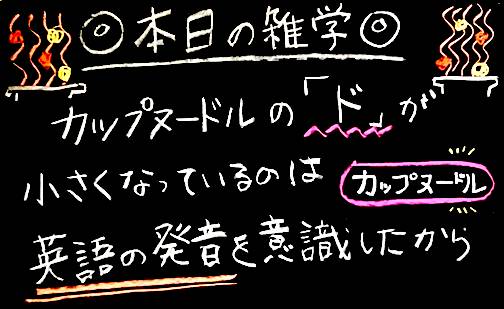 ◎本日の雑学◎
カップヌードルの「ド」が
小さくなっているのは カップヌードル
英語の発音を意識したから